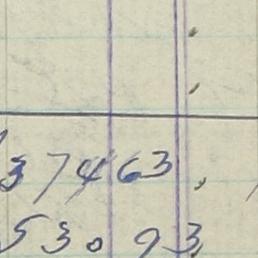 37463,
530 93